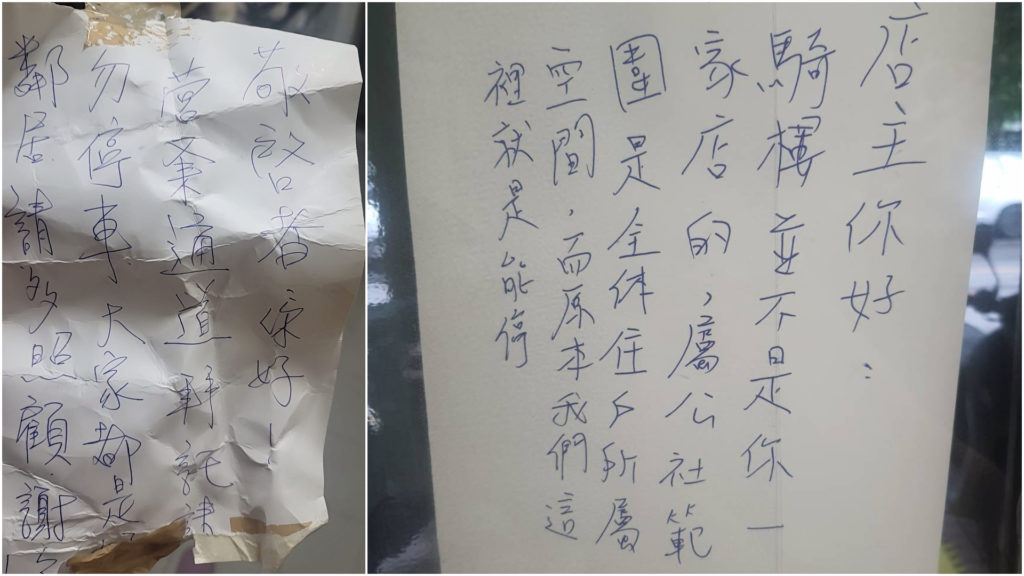 敬啟者您好!
營業通道拜託請
勿停車大家都是
鄰居請多照顧.謝
店主你好:
騎樓並不是你一
家店的,屬公社範
圍是全体住戶所屬
空間,而原本我們這
裡就是能停